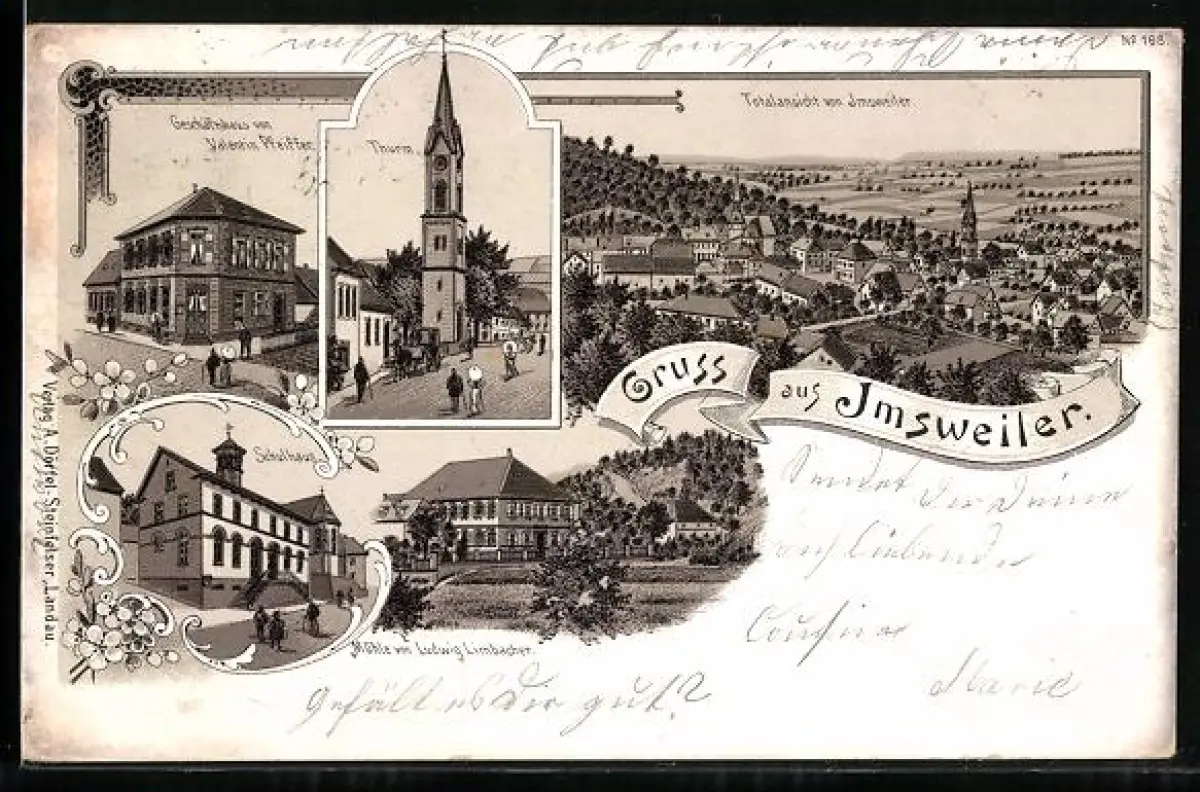 No 168.
Geschäftshaus von
Valentin Pfeiffer.
Thurm.
Totalansicht von Jmsweiler.
Gruss
aus Jmsweiler.
Schulhaus.
Mühle von Ludwig Limbacher.
Verlag A. Dörfel-Steinfelser, Landau.
Sendet Dir Deine
Dich liebende
Cousine
Marie
Gefällt es Dir gut?